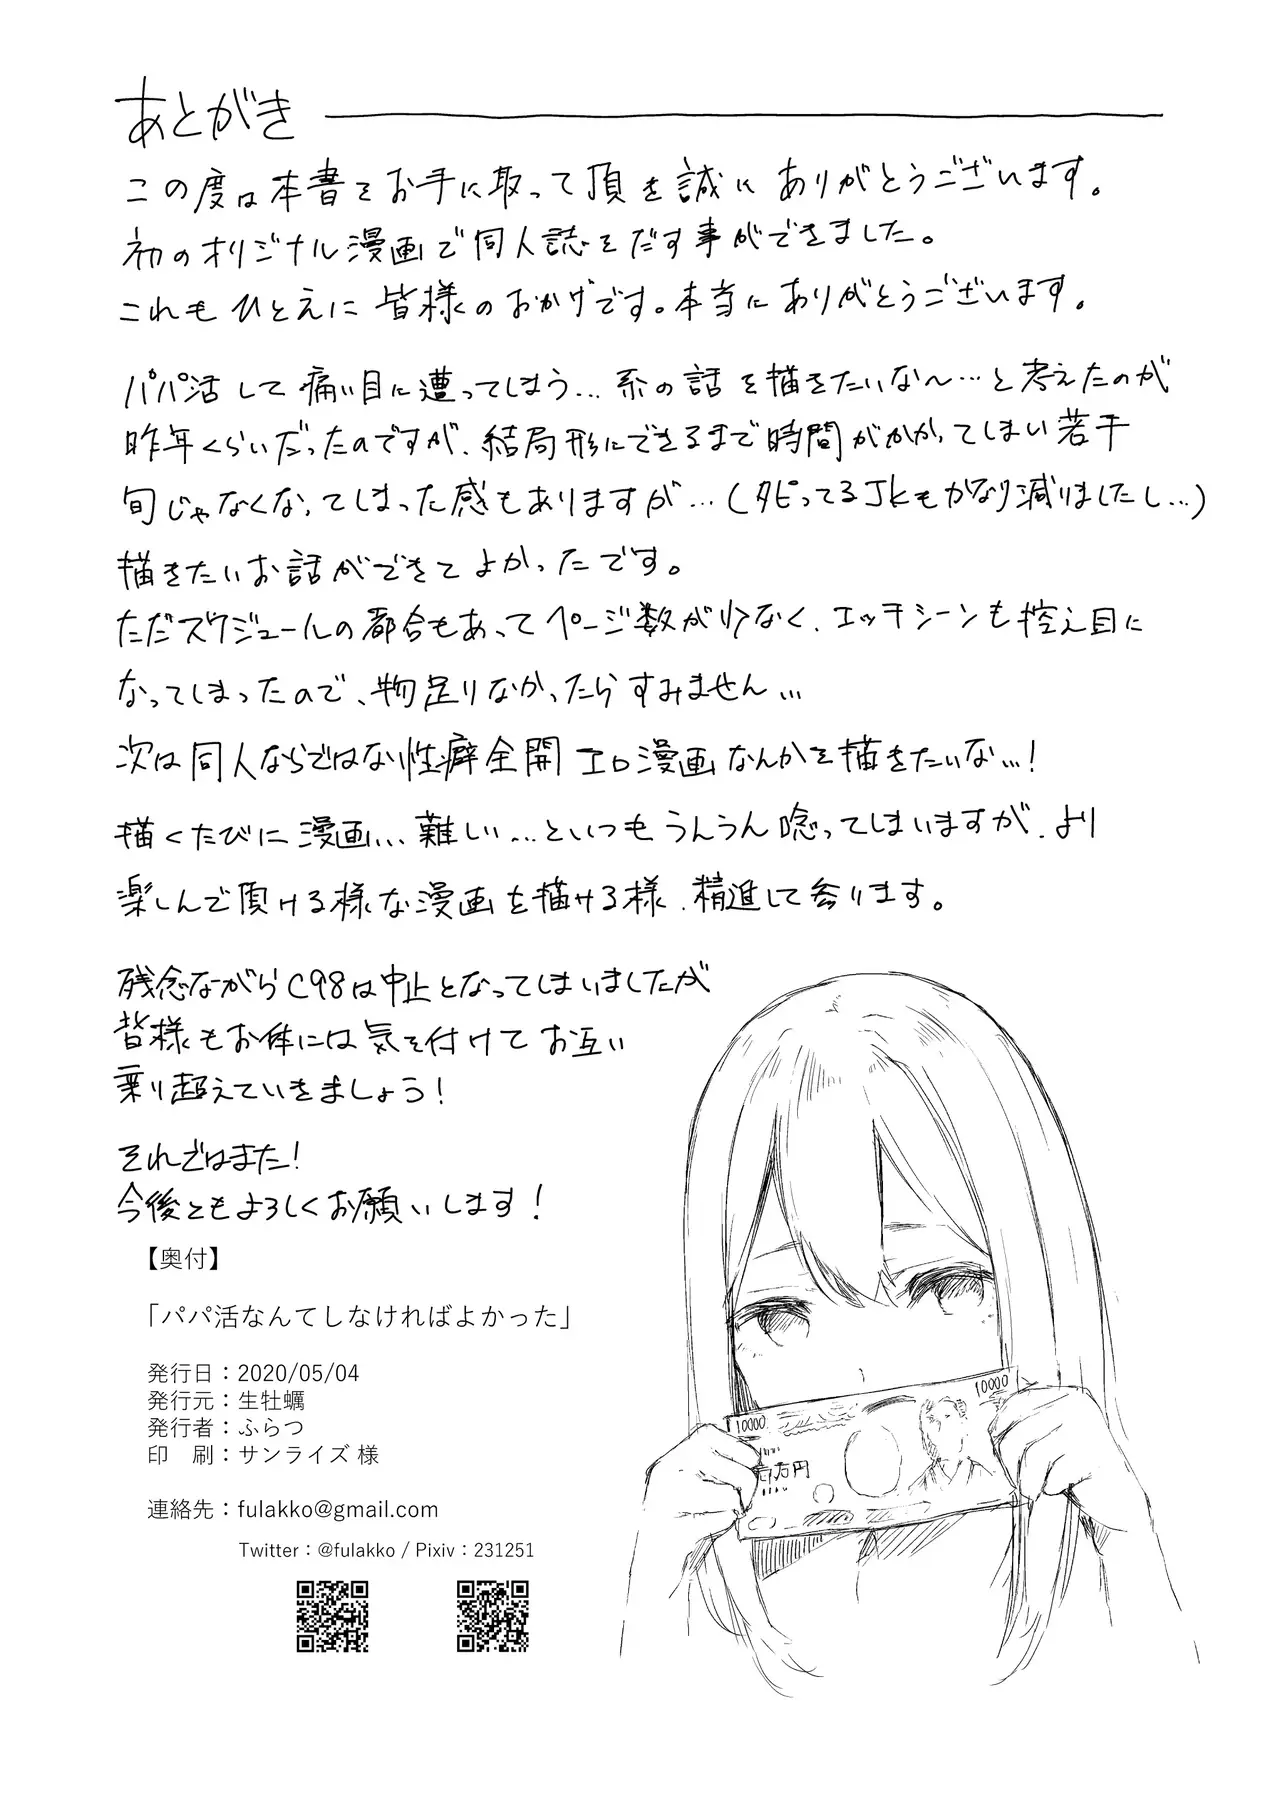 あとがき
この度は本書をお手に取って頂き誠にありがとうございます。
初のオリジナル漫画で同人誌をだす事ができました。
これもひとえに皆様のおかげです。本当にありがとうございます。
パパ活して痛い目に遭ってしまう…系の話を描きたいな～…と考えたのが
昨年くらいだったのですが、結局形にできるまで時間がかかってしまい若干
旬じゃなくなってしまった感もありますが…(タピってるJKもかなり減りましたし…)
描きたいお話ができてよかったです。
ただスケジュールの都合もあってページ数が少なく、エッチシーンも控え目に
なってしまったので、物足りなかったらすみません…
次は同人ならではな性癖全開エロ漫画なんかを描きたいな…!
描くたびに漫画…難しい…といつもうんうん唸ってしまいますが、より
楽しんで頂ける様な漫画を描ける様、精進して参ります。
残念ながらC98は中止となってしまいましたが
皆様もお体には気を付けてお互い
乗り超えていきましょう!
それではまた!
今後ともよろしくお願いします!
【奥付】
「パパ活なんてしなければよかった」
発行日：2020/05/04
発行元：生牡蠣
発行者：ふらつ
印　刷：サンライズ 様
連絡先：fulakko@gmail.com
Twitter：@fulakko / Pixiv：231251
10000
10000
壱万円